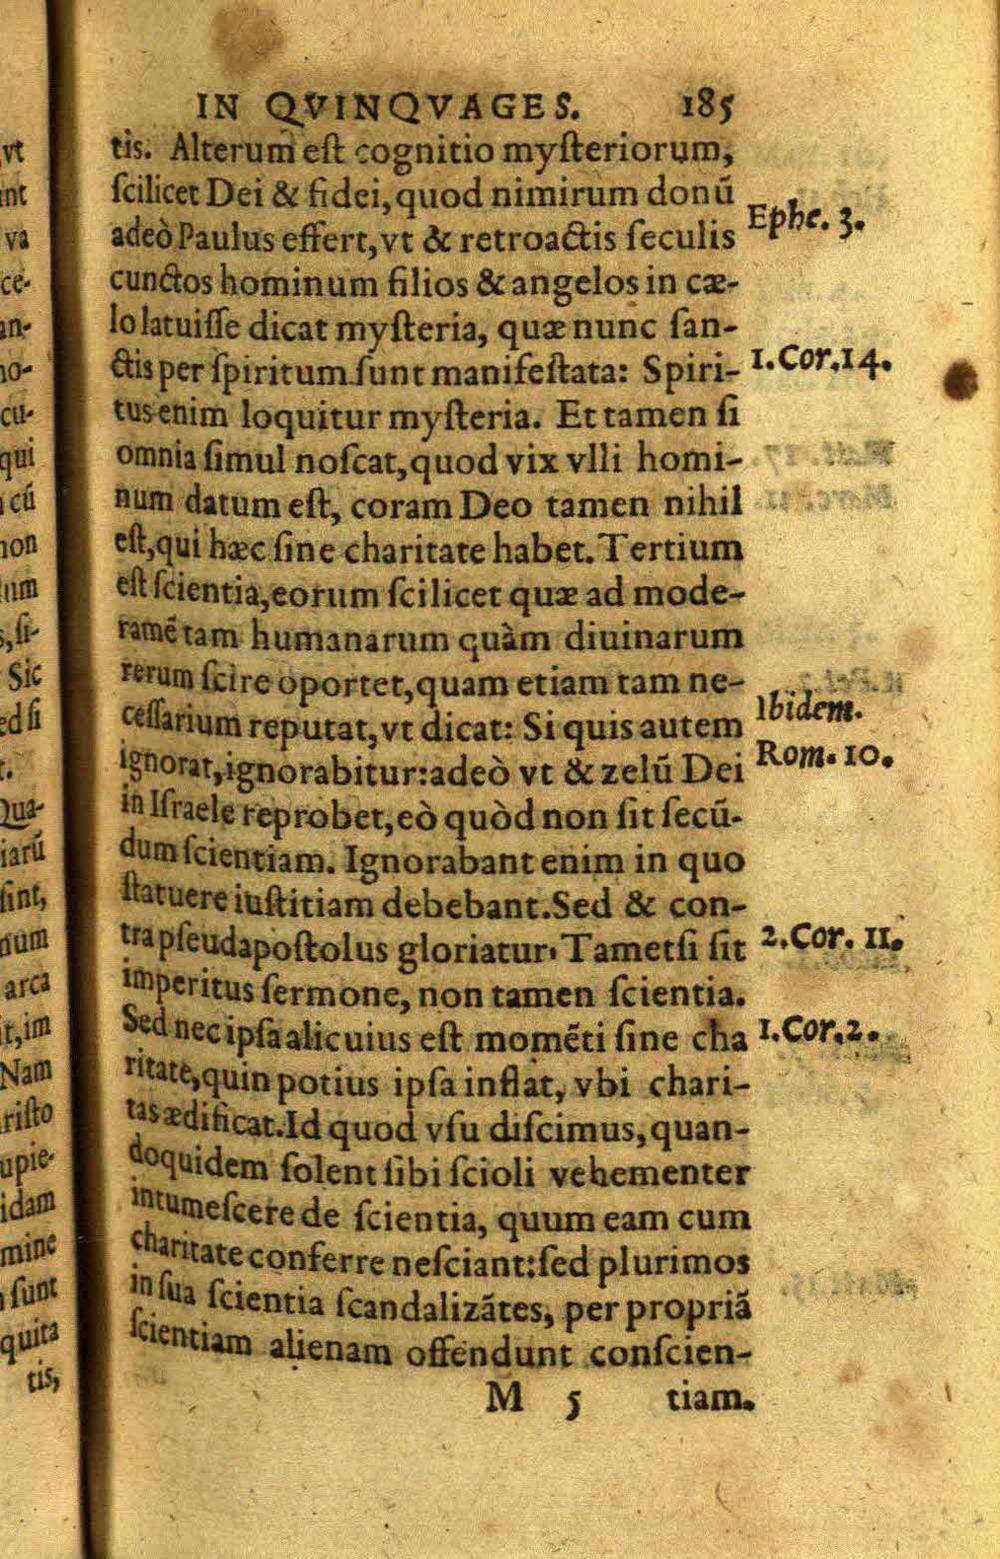 IN QVINQVAGES. 185
tis. Alterum eſt cognitio myſteriorum,
ſcilicet Dei & fidei, quod nimirum donū
adeò Paulus effert, vt & retroactis ſeculis
Ephe. 3.
cunctos hominum filios & angelos in cæ-
lo latuiſſe dicat myſteria, quæ nunc ſan-
ctis per ſpiritum ſunt manifeſtata: Spiri-
1. Cor. 14.
tus enim loquitur myſteria. Et tamen ſi
omnia ſimul noſcat, quod vix vlli homi-
num datum eſt, coram Deo tamen nihil
eſt, qui hæc ſine charitate habet. Tertium
eſt ſcientia, eorum ſcilicet quæ ad mode-
ramē tam humanarum quàm diuinarum
rerum ſcire oportet, quam etiam tam ne-
ceſſarium reputat, vt dicat: Si quis autem
Ibidem.
ignorat, ignorabitur: adeò vt & zelū Dei
Rom. 10.
in Iſraele reprobet, eò quòd non ſit ſecū-
dum ſcientiam. Ignorabant enim in quo
ſtatuere iuſtitiam debebant. Sed & con-
tra pſeudapoſtolus gloriatur. Tametſi ſit
2. Cor. 11.
imperitus ſermone, non tamen ſcientia.
Sed nec ipſa alicuius eſt momēti ſine cha
1. Cor. 2.
ritate, quin potius ipſa inflat, vbi chari-
tas ædificat. Id quod vſu diſcimus, quan-
doquidem ſolent ſibi ſcioli vehementer
intumeſcere de ſcientia, quum eam cum
charitate conferre neſciant: ſed plurimos
in ſua ſcientia ſcandalizātes, per propriā
ſcientiam alienam offendunt conſcien-
M 5 tiam.